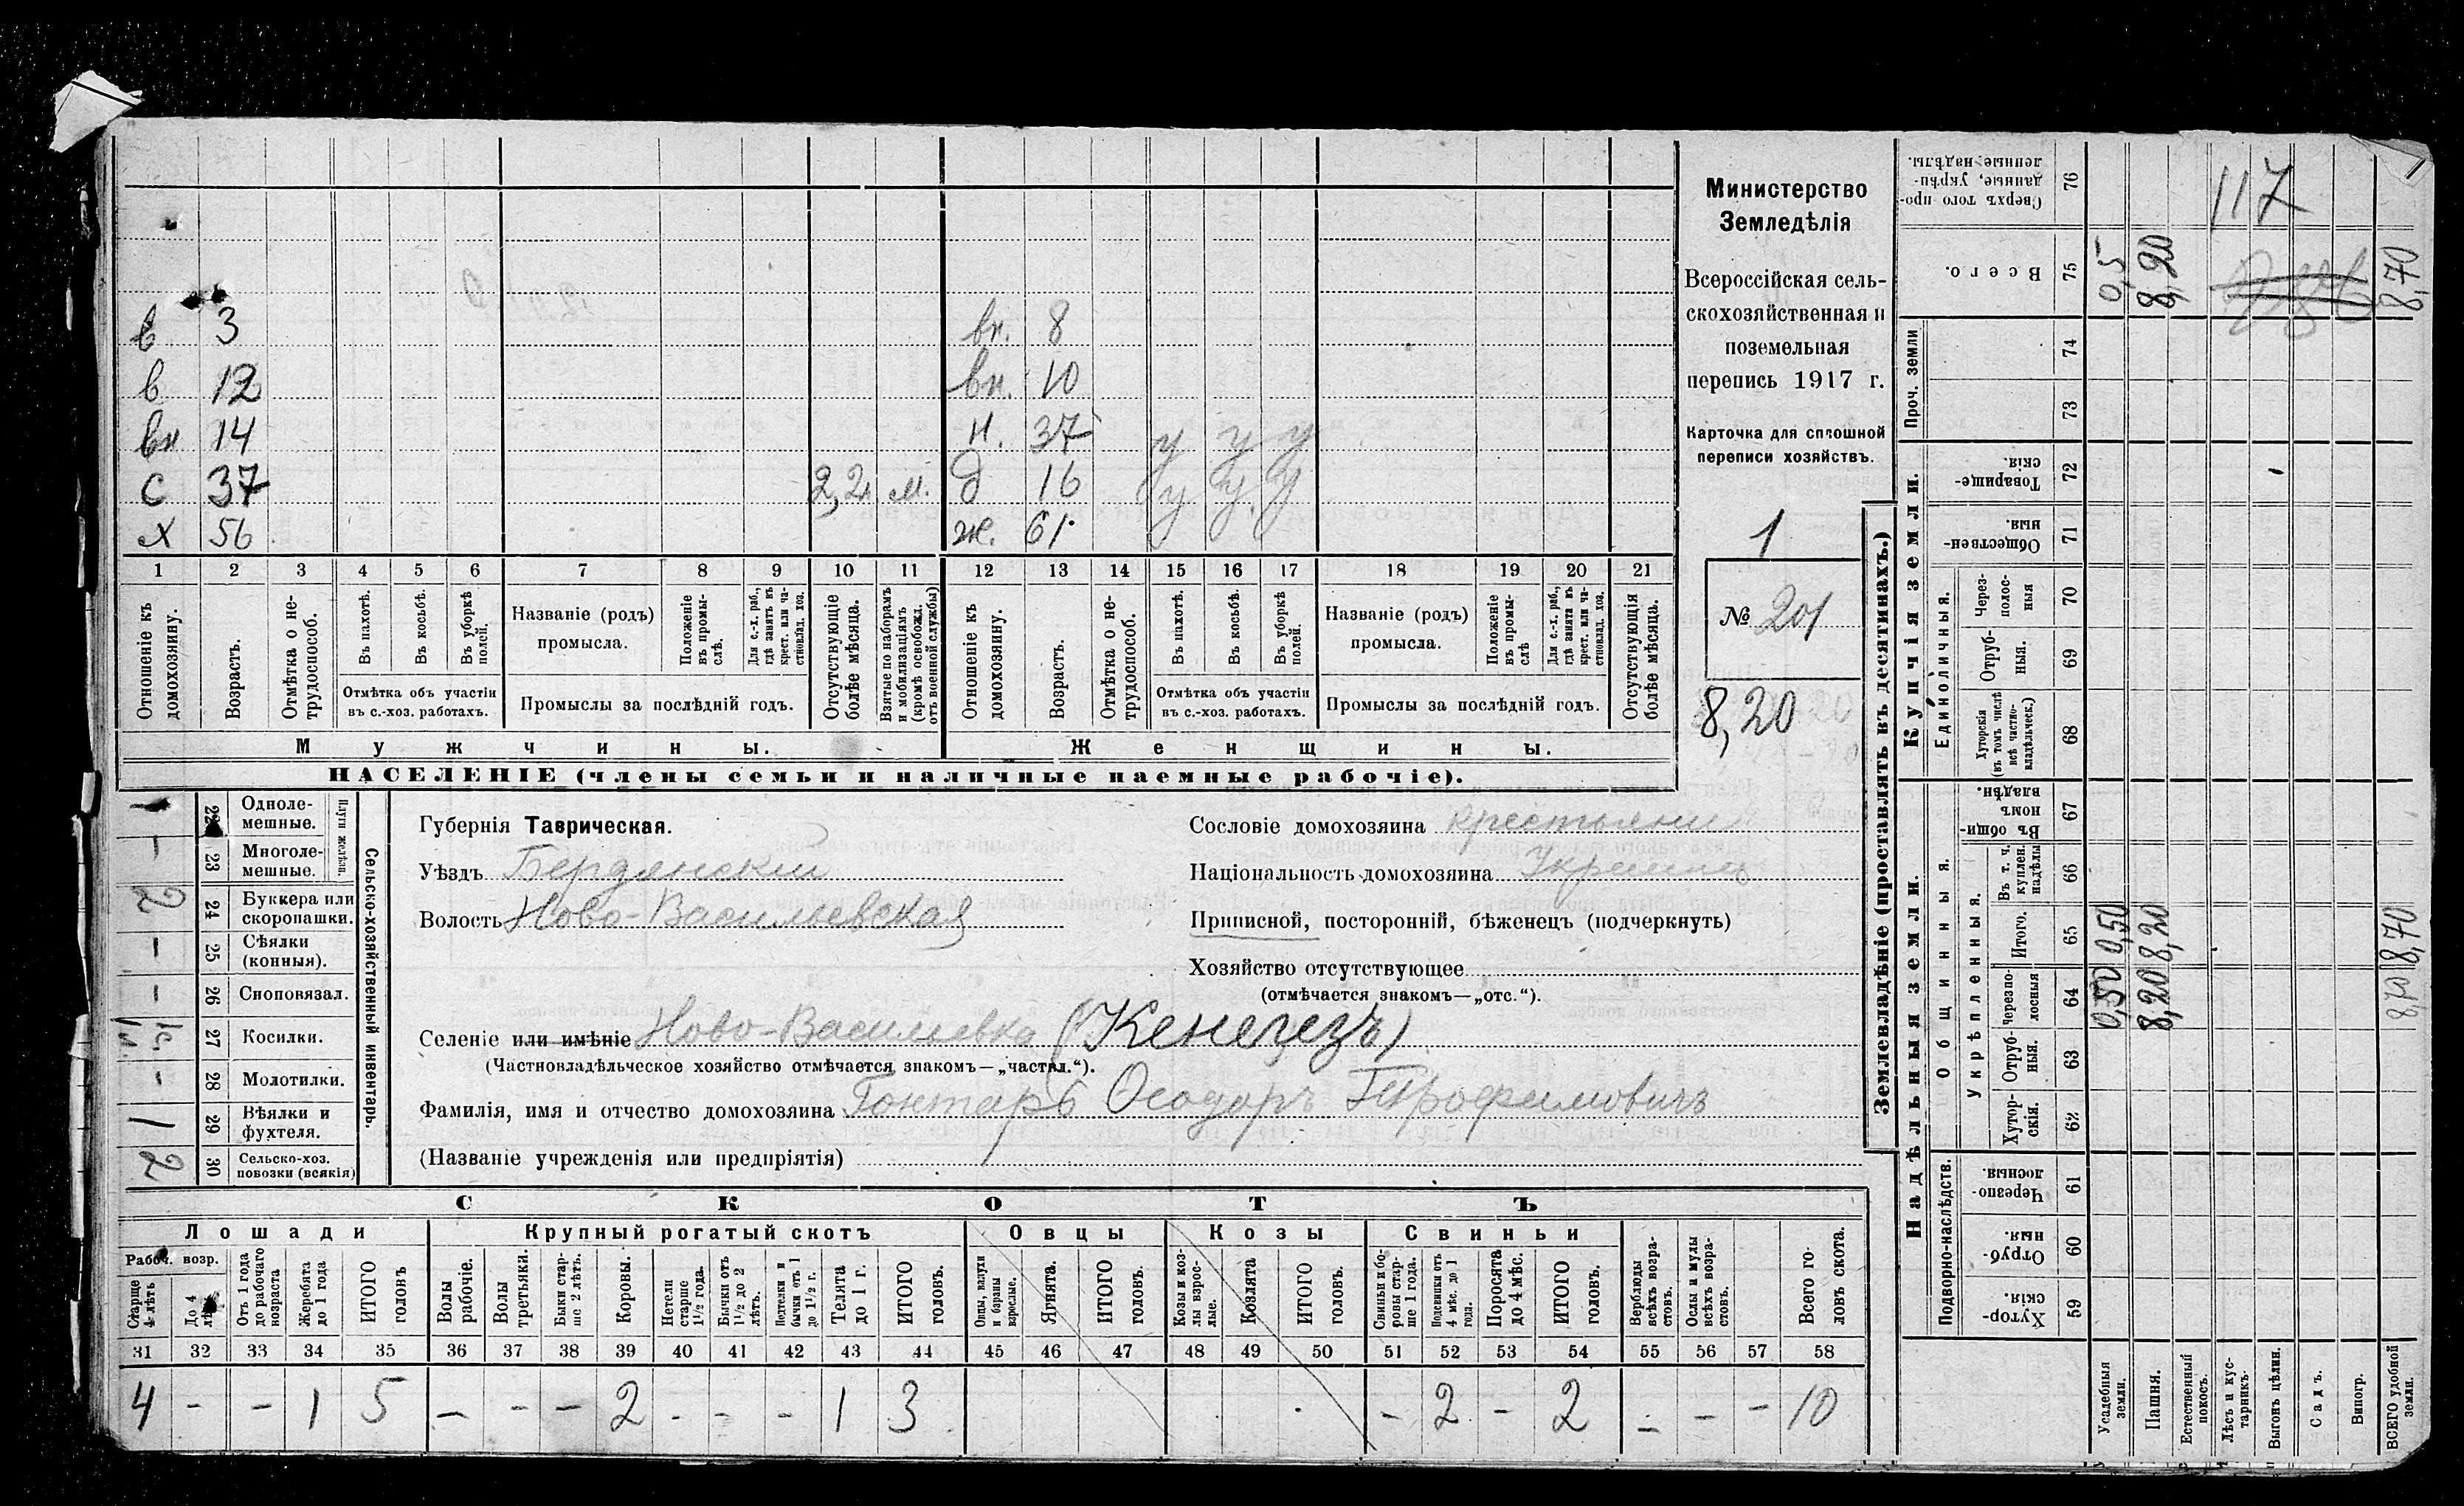 Министерство
Земледѣлія
Всероссійская сель-
скохозяйственная и
поземельная
перепись 1917 г.
Карточка для сплошной
переписи хозяйствъ.
1
№ 201
8,20
в 3 вн. 8
в 12 вн. 10
вн 14 н. 37 у у у
с 37 2,2 м. д 16 у у у
х 56 ж. 61
1 2 3 4 5 6 7 8 9 10 11 12 13 14 15 16 17 18 19 20 21
Отношеніе къ домохозяину.
Возрастъ.
Отмѣтка о не-трудоспособ.
Въ пахотѣ.
Въ косьбѣ.
Въ уборкѣ полей.
Отмѣтка объ участіи
въ с.-хоз. работахъ.
Названіе (родъ)
промысла.
Положеніе въ промы-слѣ.
Для с.-х. раб., гдѣ занятъ въ крест. или ча-стновлад. хоз.
Промыслы за послѣдній годъ.
Отсутствующіе болѣе мѣсяца.
Взятые по наборамъ и мобилизаціямъ (кромѣ освобожд. отъ военной службы)
Отношеніе къ домохозяину.
Возрастъ.
Отмѣтка о не-трудоспособ.
Въ пахотѣ.
Въ косьбѣ.
Въ уборкѣ полей.
Отмѣтка объ участіи
въ с.-хоз. работахъ.
Названіе (родъ)
промысла.
Положеніе въ промы-слѣ
Для с.-х. раб., гдѣ занята въ крест. или ча-стновлад. хоз.
Промыслы за послѣдній годъ.
Отсутствующія болѣе мѣсяца.
Мужчины. Женщины.
НАСЕЛЕНІЕ (члены семьи и наличные наемные рабочіе).
Сельско-хозяйственный инвентарь.
Плуги желѣзн.
1 22 Одноле-мешные.
– 23 Многоле-мешные.
2 24 Буккера или скоропашки.
– 25 Сѣялки (конныя).
– 26 Сноповязал.
27 Косилки.
– 28 Молотилки.
1 29 Вѣялки и фухтеля.
2 30 Сельско-хоз. повозки (всякія)
Губернія Таврическая.
Уѣздъ Бердянскій
Волость Ново-Васильевская
Сословіе домохозяина крестьянин
Національность домохозяина Украинц
Приписной, посторонній, бѣженецъ (подчеркнуть)
Хозяйство отсутствующее
(отмѣчается знакомъ—„отс.“).
Селеніе или имѣніе Ново-Васильевка (Кенегезъ)
(Частновладѣльческое хозяйство отмѣчается знакомъ—„частвл.“).
Фамилія, имя и отчество домохозяина Гонтарь Ѳеодоръ Трофимовичъ
(Названіе учрежденія или предпріятія)
СКОТЪ
Лошади Крупный рогатый скотъ Овцы Козы Свиньи
Рабоч. возр.
Старше 4 лѣтъ
До 4 лѣтъ
Отъ 1 года до рабочаго возраста
Жеребята до 1 года
ИТОГО головъ
Волы рабочіе.
Волы третьяки.
Быки стар-ше 2 лѣтъ.
Коровы.
Нетели старше 1½ года.
Бычки отъ 1½ до 2 лѣтъ.
Нетелки и бычки отъ 1 до 1½ г.
Телята до 1 г.
ИТОГО головъ.
Овцы, валухи и бараны взрослые.
Ягнята.
ИТОГО головъ.
Козы и коз-лы взрос-лые.
Козлята
ИТОГО головъ.
Свиньи и бо-ровы стар-ше 1 года.
Подсвинки отъ 4 мѣс. до 1 года.
Поросята до 4 мѣс.
ИТОГО головъ.
Верблюды всѣхъ возра-стовъ.
Ослы и мулы всѣхъ возра-стовъ.
Всего го-ловъ скота.
31 32 33 34 35 36 37 38 39 40 41 42 43 44 45 46 47 48 49 50 51 52 53 54 55 56 57 58
4 – – 1 5 – – – 2 – – – 1 3 – 2 – 2 – – – 10
Землевладѣніе (проставлять въ десятинахъ.)
Купчія земли.
Надѣльныя земли.
Проч. земли
Единоличныя.
Общинныя.
Укрѣпленныя.
Подворно-наслѣдств.
Сверхъ того про-данные, укрѣп-ленные надѣлы. 76 117
Всего. 75 0,5 8,20 8,70
74
73
Товарище-скія. 72
Обществен-ныя. 71
Через-полос-ныя 70
Отруб-ныя. 69
Хуторскія (въ томъ числѣ всѣ частно-владѣльческ.) 68
Въ общин-номъ владѣн. 67
Въ т. ч. куплен. надѣлы 66
Итого. 65 0,50 8,20 8,70
Черезпо-лосныя 64 0,50 8,20 8,70
Отруб-ныя. 63
Хутор-скія. 62
Черезпо-лосныя 61
Отруб-ныя. 60
Хутор-скія. 59
Усадебныя земли.
Пашня.
Естественный покосъ.
Лѣсъ и кус-тарникъ.
Выгонъ цѣлин.
Садъ.
Виногр.
ВСЕГО удобной земли.